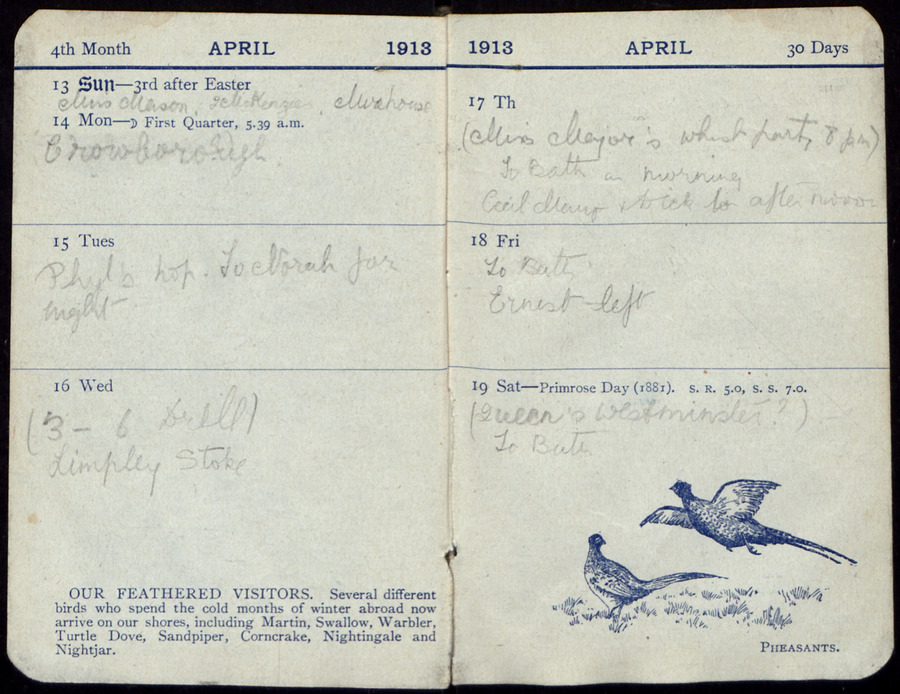 4th Month APRIL 1913
13 Sun—3rd after Easter
Miss Mason, McKenzies,
14 Mon—☽ First Quarter, 5.39 a.m.
Crowborough
15 Tues
Phyl's hop. To Norah for
night
16 Wed
(3 – 6 Drill)
Limpley Stoke
OUR FEATHERED VISITORS. Several different
birds who spend the cold months of winter abroad now
arrive on our shores, including Martin, Swallow, Warbler,
Turtle Dove, Sandpiper, Corncrake, Nightingale and
Nightjar.
1913 APRIL 30 Days
17 Th
(Miss Mayor's whist party 8 pm)
To Bath in morning
Cecil for afternoon
18 Fri
To Bath
Ernest left
19 Sat—Primrose Day (1881). S. R. 5.0, S. S. 7.0.
(Queen's Westminster?)
To Bath
PHEASANTS.